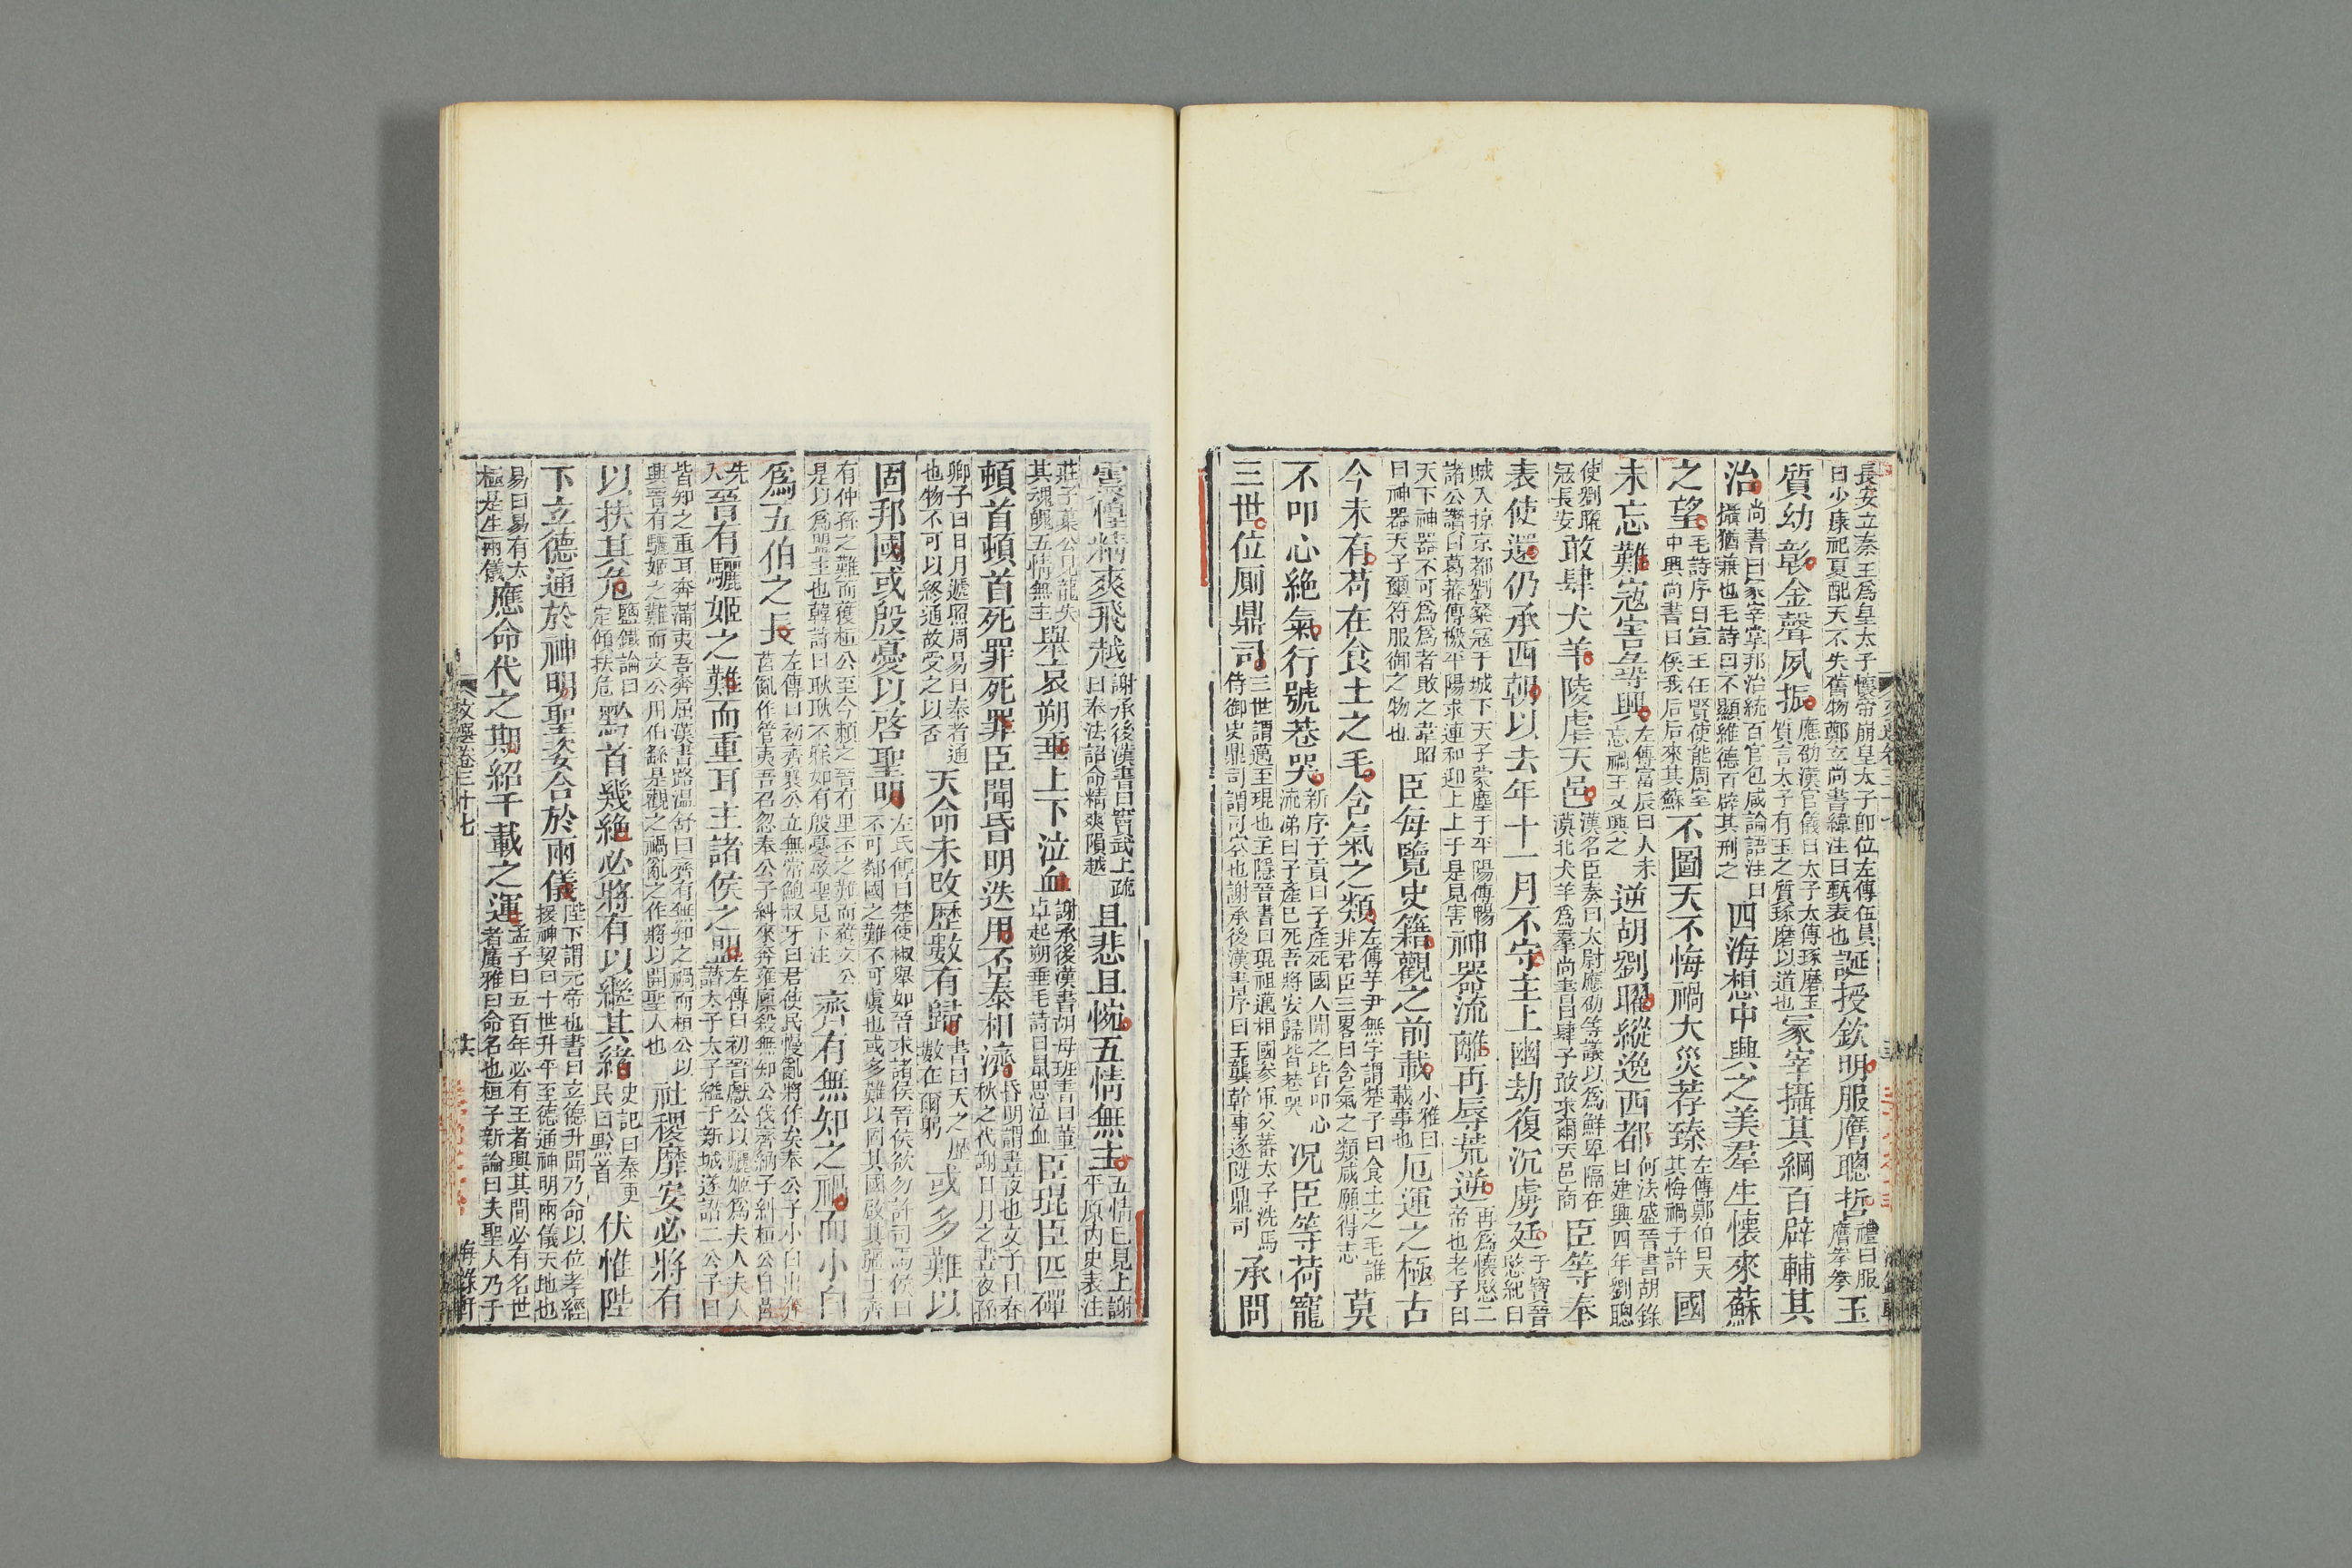 長安立秦王爲皇太子懷帝崩皇太子卽位左傳伍員
曰少康祀夏配天不失舊物鄭玄尚書緯注曰甄表也
誕授欽明服膺聰哲
禮曰服
膺拳拳
玉
質幼彰金聲夙振
應劭漢官儀曰太子太傅琢磨玉
質言太子有玉之質琢磨以道也
冢宰攝其綱百辟輔其
治
尚書曰冢宰掌邦治統百官包咸論語注曰
攝猶兼也毛詩曰不顯維德百辟其刑之
四海想中興之美羣生懷來蘇
之望
毛詩序曰宣王任賢使能周室
中興尚書曰徯我后后來其蘇
不圖天不悔禍大災荐臻
左傳鄭伯曰天
其悔禍于許
國
未忘難寇害尋興
左傳富辰曰人未
忘禍王又興之
逆胡劉曜縱逸西都
何法盛晉書胡錄
曰建興四年劉聰
使劉曜
寇長安
敢肆犬羊陵虐天邑
漢名臣奏曰太尉應劭等議以爲鮮卑隔在
漠北犬羊爲羣尚書曰肆予敢求爾天邑商
臣等奉
表使還仍承西朝以去年十一月不守主上幽劫復沉虜廷
干寶晉
愍紀曰
賊入掠京都劉粲寇于城下天子蒙塵于平陽傅暢
諸公讚曰葛蕃傳檄平陽求連和迎上上于是見害
神器流離再辱荒逆
再爲懷愍二
帝也老子曰
天下神器不可爲爲者敗之韋昭
曰神器天子璽符服御之物也
臣每覽史籍觀之前載
小雅曰
載事也
厄運之極古
今未有苟在食土之毛含氣之類
左傳芋尹無宇謂楚子曰食土之毛誰
非君臣三畧曰含氣之類咸願得志
莫
不叩心絶氣行號巷哭
新序子貢曰子產死國人聞之皆叩心
流涕曰子產已死吾將安歸皆巷哭
况臣等荷寵
三世位厠鼎司
三世謂邁至琨也王隱晉書曰琨祖邁相國參軍父蕃太子洗馬
侍御史鼎司謂司空也謝承後漢書序曰王龔幹事遂陟鼎司
承問
震惶精爽飛越
謝承後漢書曰竇武上疏
曰奉法詔命精爽隕越
且悲且惋五情無主
五情已見上謝
平原內史表注
莊子葉公見龍失
其魂魄五情無主
舉哀朔垂上下泣血
謝承後漢書胡母班書曰董
卓起朔垂毛詩曰鼠思泣血
臣琨臣匹磾
頓首頓首死罪死罪臣聞昏明迭用否泰相濟
昏明謂晝夜也文子曰春
秋之代謝日月之晝夜孫
卿子曰日月遞照周易曰泰者通
也物不可以終通故受之以否
天命未改歷數有歸
書曰天之歷
數在爾躬
或多難以
固邦國或殷憂以啓聖明
左氏傳曰楚使椒舉如晉求諸侯晉侯欲勿許司馬侯曰
不可鄰國之難不可虞也或多難以固其國啟其疆土齊
有仲孫之難而獲桓公至今賴之晉有里丕之難而獲文公
是以爲盟主也韓詩曰耿耿不寐如有殷憂啟聖見下注
齊有無知之禍而小白
爲五伯之長
左傳曰初齊襄公立無常鮑叔牙曰君使民慢亂將作矣奉公子小白出奔
莒亂作管夷吾召忽奉公子糾來奔雍廩殺無知公伐齊納子糾桓公自莒
先
入
晉有驪姬之難而重耳主諸侯之盟
左傳曰初晉獻公以驪姬爲夫人夫人
譖太子太子縊于新城遂譖二公子曰
皆知之重耳奔蒲夷吾奔屈漢書路溫舒曰齊有無知之禍而桓公以
興晉有驪姬之難而文公用伯繇是觀之禍亂之作將以開聖人也
社稷靡安必將有
以扶其危
鹽鐵論曰
定傾扶危
黔首幾絶必將有以繼其緒
史記曰秦更
民曰黔首
伏惟陛
下立德通於神明聖姿合於兩儀
陛下謂元帝也書曰立德升聞乃命以位孝經
援神契曰十世升平至德通神明兩儀天地也
易曰易有太
極是生兩儀
應命代之期紹千載之運
孟子曰五百年必有王者興其間必有名世
者廣雅曰命名也桓子新論曰夫聖人乃千
文選卷三十七
海錄軒